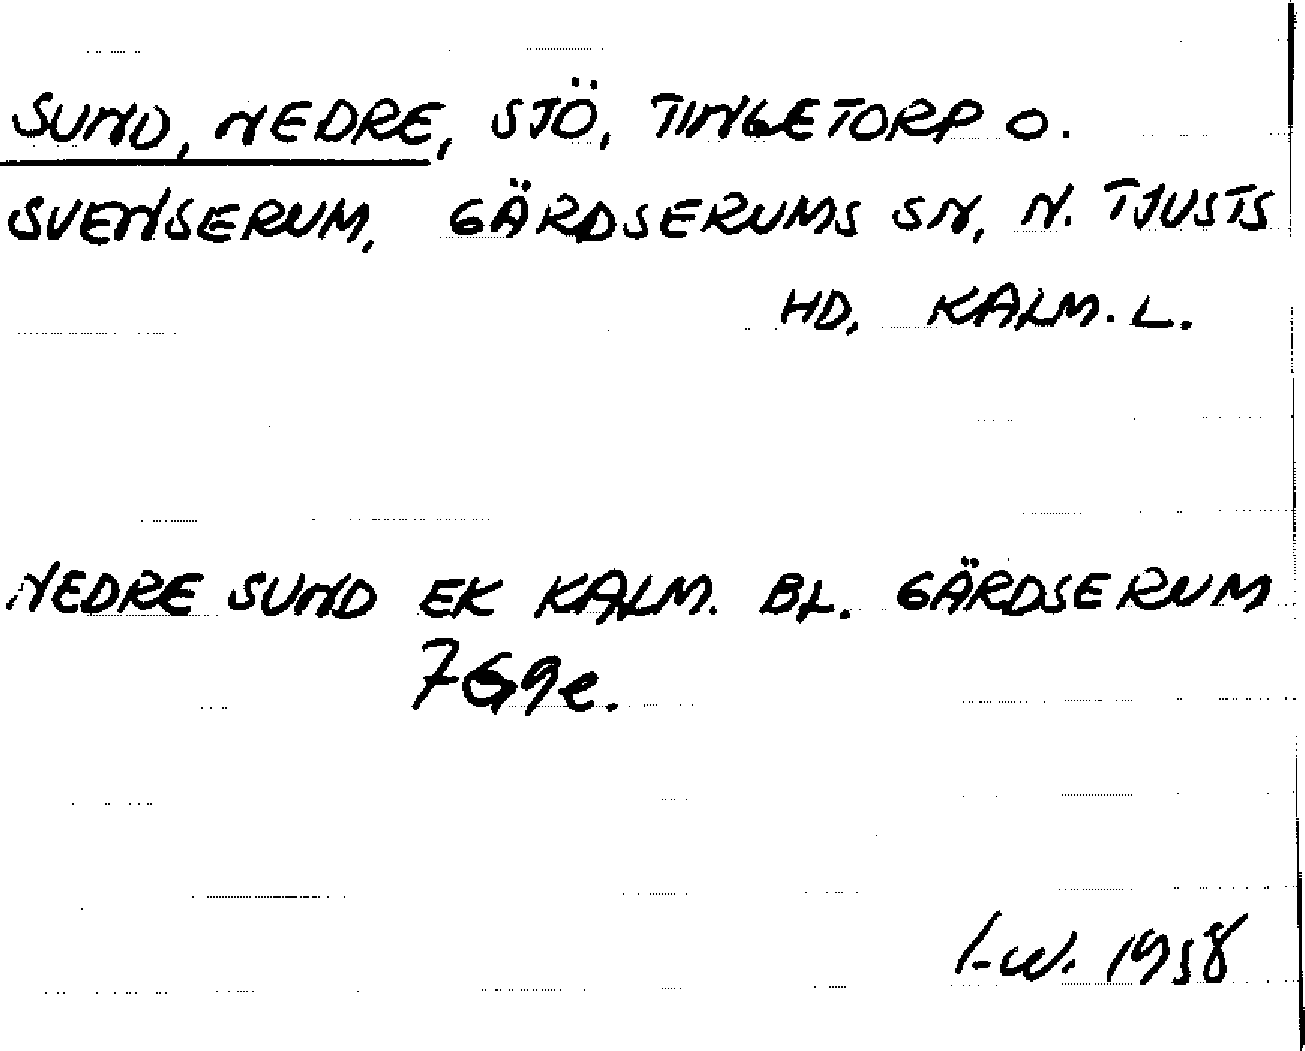 SUND, NEDRE, SJÖ, TINGETORP O.
SVENSERUM, GÄRDSERUMS SN, N. TJUSTS
HD, KALM. L.
NEDRE SUND EK KALM. BL. GÄRDSERUM
7G9e.
I-W. 1958